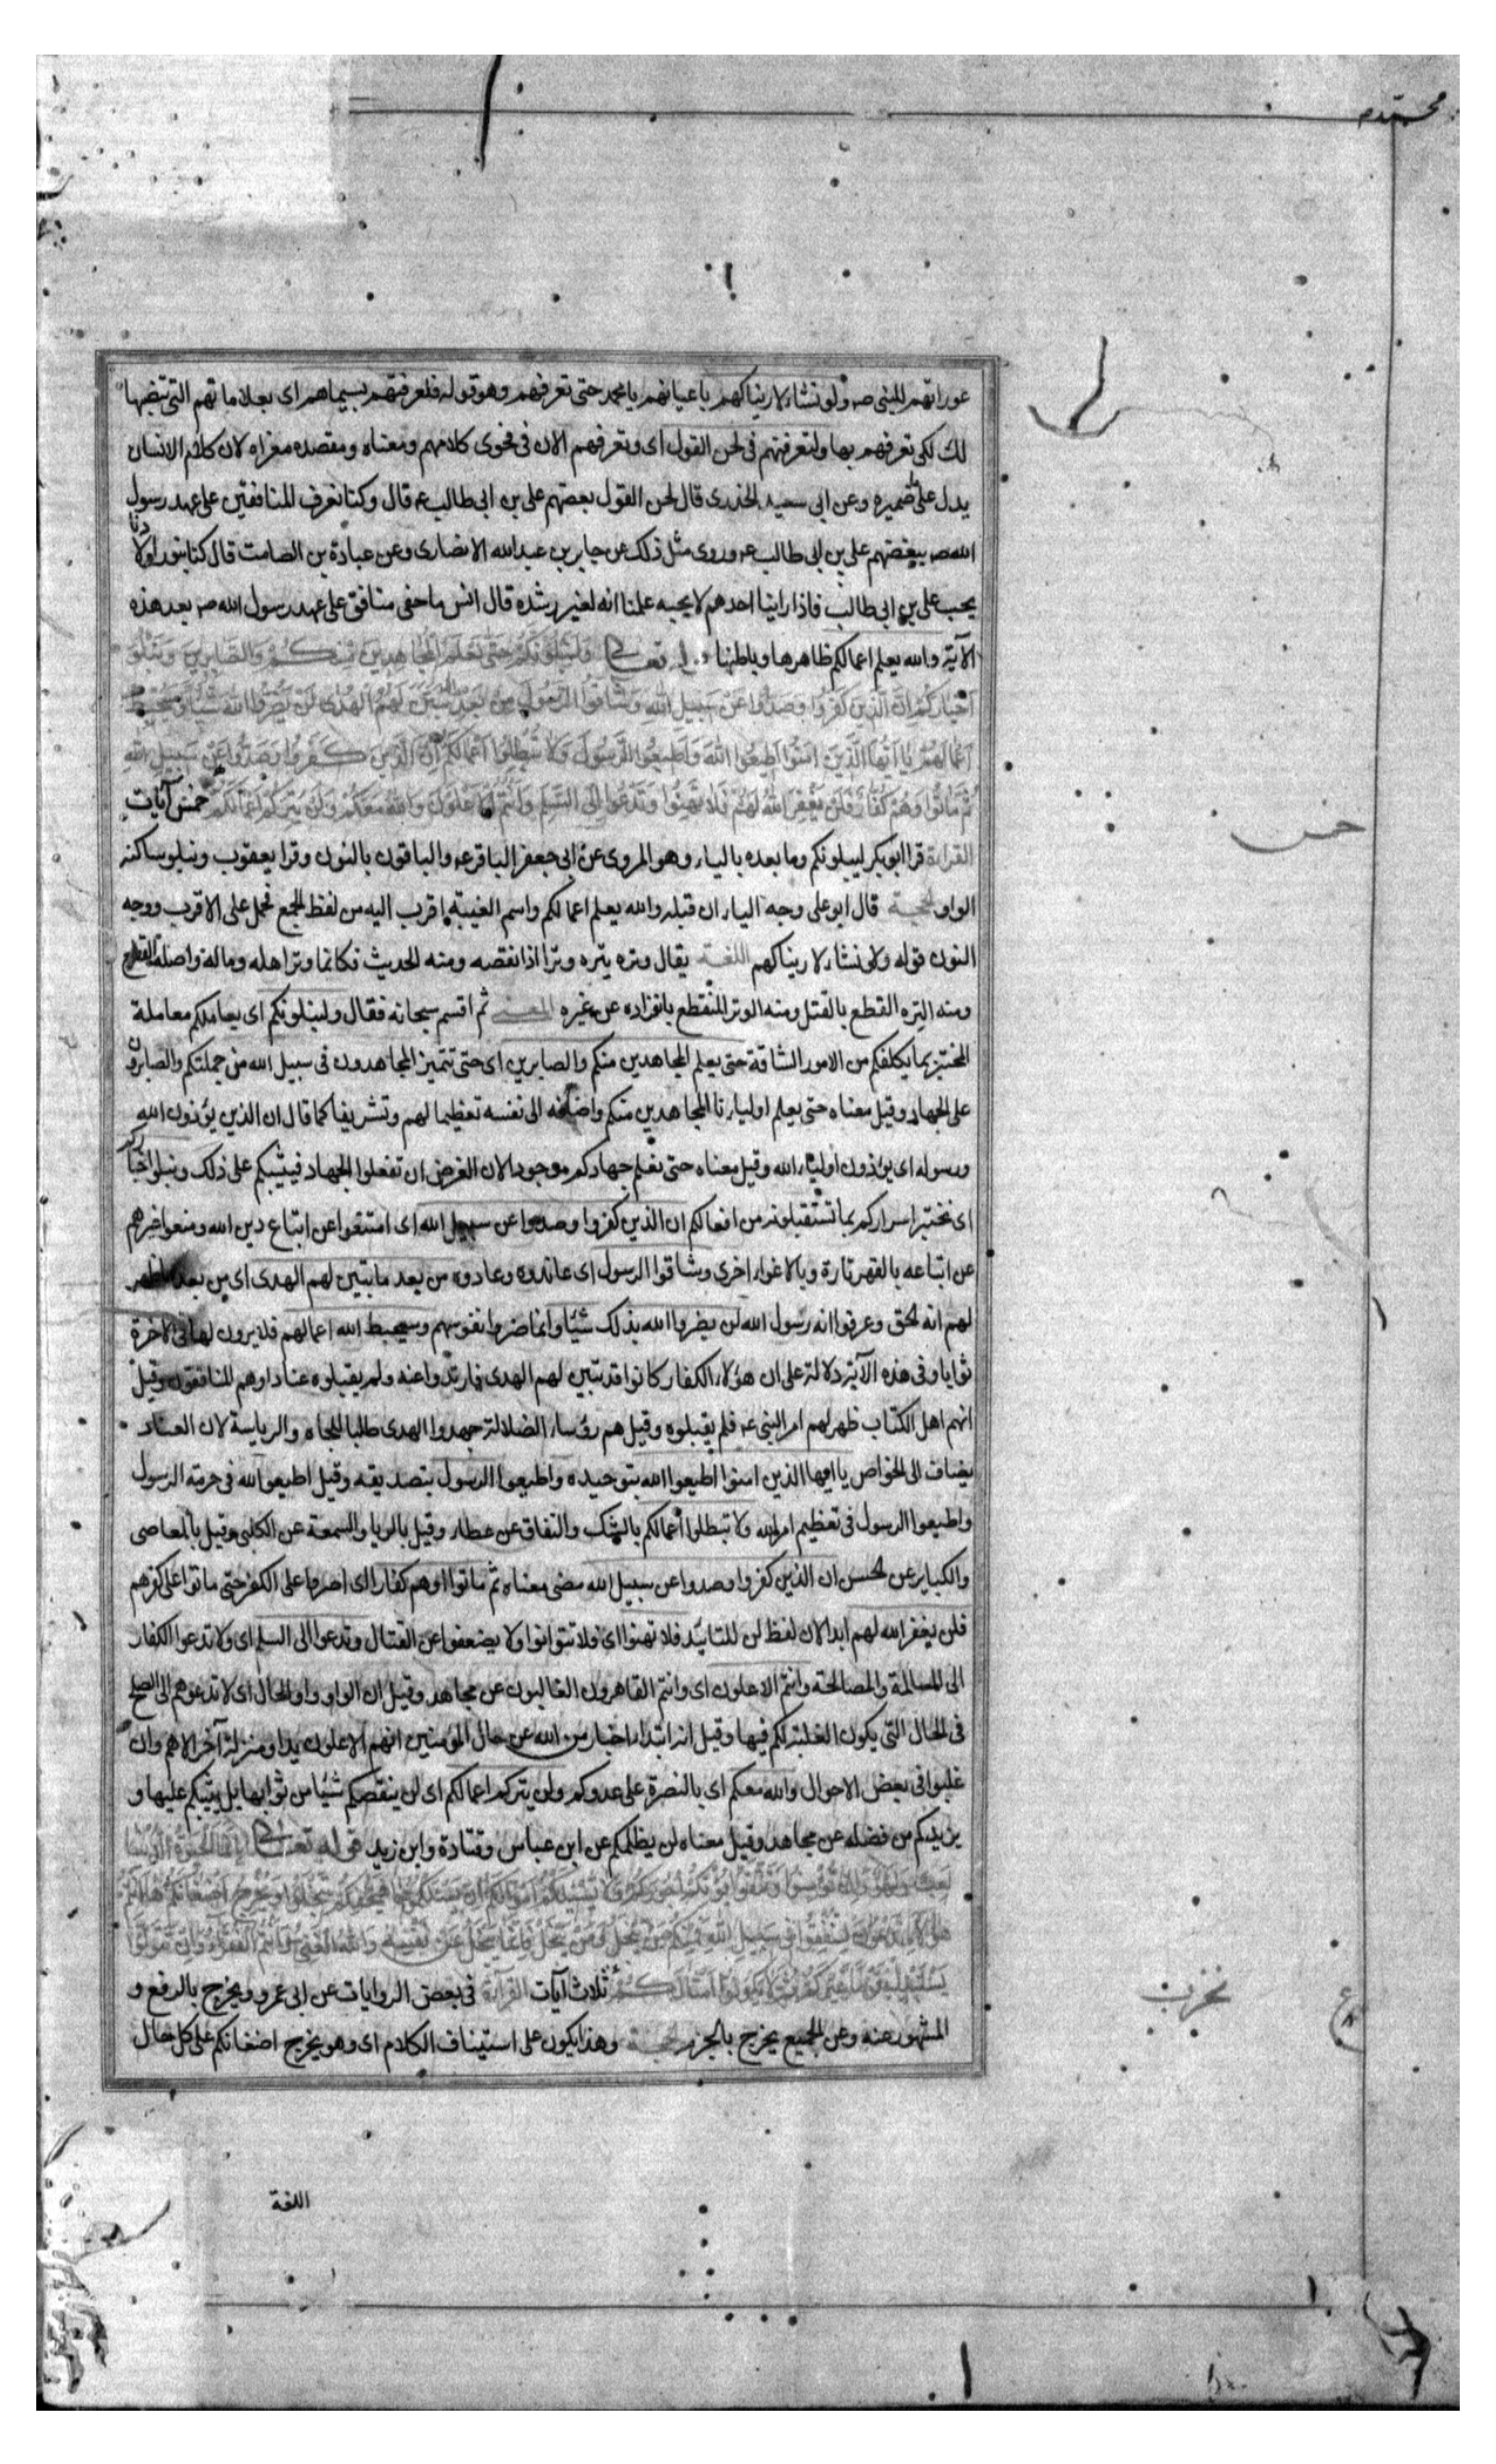 محمد
عوراتهم للنبی صہ ولو نشاء لاریناکهم باعیانهم یا محمد حتی تعرفهم وهو قوله فلعرفتهم بسیماهم ای بعلاماتهم التی تنصبها
لك لکی تعرفهم بها ولتعرفنهم فی لحن القول ای وتعرفهم الان فی فحوی کلامهم ومعناه ومقصده مغزاه لان کلام الانسان
یدل علی ضمیره وعن ابی سعید الخدری قال لحن القول بغضهم علی بن ابی طالب ع قال وکنا نعرف المنافقین علی عهد رسول
الله صہ ببغضهم علی بن ابی طالب ع وروی مثل ذلک عن جابر بن عبدالله الانصاری وعن عبادة بن الصامت قال کنا نبور اولادنا
بحب علی بن ابی طالب فاذا راینا احدهم لا یحبه علمنا انه لغیر رشده قال انس ما خفی منافق علی عهد رسول الله صہ بعد هذه
الآیة والله یعلم اعمالکم ظاهرها وباطنها قوله تعالی وَلَنَبْلُوَنَّكُمْ حَتَّى نَعْلَمَ الْمُجَاهِدِينَ مِنْكُمْ وَالصَّابِرِينَ وَنَبْلُوَ
أَخْبَارَكُمْ إِنَّ الَّذِينَ كَفَرُوا وَصَدُّوا عَنْ سَبِيلِ اللَّهِ وَشَاقُّوا الرَّسُولَ مِنْ بَعْدِ مَا تَبَيَّنَ لَهُمُ الْهُدَى لَنْ يَضُرُّوا اللَّهَ شَيْئًا وَسَيُحْبِطُ
أَعْمَالَهُمْ يَا أَيُّهَا الَّذِينَ آمَنُوا أَطِيعُوا اللَّهَ وَأَطِيعُوا الرَّسُولَ وَلَا تُبْطِلُوا أَعْمَالَكُمْ إِنَّ الَّذِينَ كَفَرُوا وَصَدُّوا عَنْ سَبِيلِ اللَّهِ
ثُمَّ مَاتُوا وَهُمْ كُفَّارٌ فَلَنْ يَغْفِرَ اللَّهُ لَهُمْ فَلَا تَهِنُوا وَتَدْعُوا إِلَى السَّلْمِ وَأَنْتُمُ الْأَعْلَوْنَ وَاللَّهُ مَعَكُمْ وَلَنْ يَتِرَكُمْ أَعْمَالَكُمْ خمس آیات
القراءة قرا ابوبکر لیبلونکم وما بعده بالیاء وهو المروی عن ابی جعفر الباقر ع والباقون بالنون وقرا یعقوب ونبلو ساکنة
الواو الحجة قال ابو علی وجه الیاء ان قبله والله یعلم اعمالکم واسم الغیبة اقرب الیه من لفظ الجمع فحمل علی الاقرب ووجه
النون قوله ولو نشاء لاریناکهم اللغة یقال وتره یتره وترا اذا نقصه ومنه الحدیث فکانما وتر اهله وماله واصله القطع
ومنه التره القطع بالقتل ومنه الوتر المنقطع بانفراده عن غیره المعنی ثم اقسم سبحانه فقال ولنبلونکم ای یعاملکم معاملة
المختبر بما یکلفکم من الامور الشاقة حتی یعلم المجاهدین منکم والصابرین ای حتی تتمیز المجاهدون فی سبیل الله من جملتکم والصابرون
علی الجهاد وقیل معناه حتی یعلم اولیاؤنا المجاهدین منکم واضافه الی نفسه تعظیما لهم وتشریفا کما قال ان الذین یؤذون الله
ورسوله ای یؤذون اولیاء الله وقیل معناه حتی نعلم جهادکم موجودا لان الغرض ان تفعلوا الجهاد فیثیبکم علی ذلک ونبلو اخبارکم
ای نختبر اسرارکم بما تستقبلونه من افعالکم ان الذین کفروا وصدوا عن سبیل الله ای امتنعوا عن اتباع دین الله ومنعوا غیرهم
عن اتباعه بالقهر تارة وبالاغواء اخری وشاقوا الرسول ای عاندوه وعادوه من بعد ما تبین لهم الهدی ای من بعد ما ظهر
لهم انه الحق وعرفوا انه رسول الله لن یضروا الله بذلک شیئا وانما ضروا نفوسهم وسیحبط الله اعمالهم فلا یرون لها فی الاخرة
ثوابا وفی هذه الآیة دلالة علی ان هؤلاء الکفار کانوا قد تبین لهم الهدی فارتدوا عنه ولم یقبلوه عنادا وهم المنافقون وقیل
انهم اهل الکتاب ظهر لهم امر النبی ع فلم یقبلوه وقیل هم رؤساء الضلالة جحدوا الهدی طلبا للجاه والریاسة لان العناد
یضاف الی الخواص یا ایها الذین امنوا اطیعوا الله بتوحیده واطیعوا الرسول بتصدیقه وقیل اطیعوا الله فی حرمة الرسول
واطیعوا الرسول فی تعظیم امر الله ولا تبطلوا اعمالکم بالشک والنفاق عن عطاء وقیل بالریا والسمعة عن الکلبی وقیل بالمعاصی
والکبایر عن الحسن ان الذین کفروا وصدوا عن سبیل الله مضی معناه ثم ماتوا وهم کفار ای اصروا علی الکفر حتی ماتوا علی کفرهم
فلن یغفر الله لهم ابدا لان لفظ لن للتابید فلا تهنوا ای فلا تتوانوا ولا یضعفوا عن القتال وتدعوا الی السلم ای ولا تدعوا الکفار
الی المسالمة والمصالحة وانتم الاعلون ای وانتم القاهرون الغالبون عن مجاهد وقیل ان الواو واو الحال ای لا تدعوهم الی الصلح
فی الحال التی یکون الغلبة لکم فیها وقیل انه ابتداء اخبار من الله عن حال المؤمنین انهم الاعلون یدا ومنزلة آخر الامر وان
غلبوا فی بعض الاحوال والله معکم ای بالنصرة علی عدوکم ولن یترکم اعمالکم ای لن ینقصکم شیئا من ثوابها بل یثیبکم علیها و
یزیدکم من فضله عن مجاهد وقیل معناه لن یظلمکم عن ابن عباس وقتادة وابن زید قوله تعالی إِنَّمَا الْحَيَوٰةُ الدُّنْيَا
لَعِبٌ وَلَهْوٌ وَإِنْ تُؤْمِنُوا وَتَتَّقُوا يُؤْتِكُمْ أُجُورَكُمْ وَلَا يَسْئَلْكُمْ أَمْوَالَكُمْ إِنْ يَسْئَلْكُمُوهَا فَيُحْفِكُمْ تَبْخَلُوا وَيُخْرِجْ أَضْغَانَكُمْ هَا أَنْتُمْ
هٰؤُلَاءِ تُدْعَوْنَ لِتُنْفِقُوا فِي سَبِيلِ اللَّهِ فَمِنْكُمْ مَنْ يَبْخَلُ وَمَنْ يَبْخَلْ فَإِنَّمَا يَبْخَلُ عَنْ نَفْسِهِ وَاللَّهُ الْغَنِيُّ وَأَنْتُمُ الْفُقَرَاءُ وَإِنْ تَتَوَلَّوْا
يَسْتَبْدِلْ قَوْمًا غَيْرَكُمْ ثُمَّ لَا يَكُونُوا أَمْثَالَكُمْ ثلاث آیات القراءة فی بعض الروایات عن ابی عمرو ویخرج بالرفع و
المشهور عنه وعن الجمیع یخرج بالجزم الحجة وهذا یکون علی استیناف الکلام ای وهو یخرج اضغانکم علی کل حال
اللغة